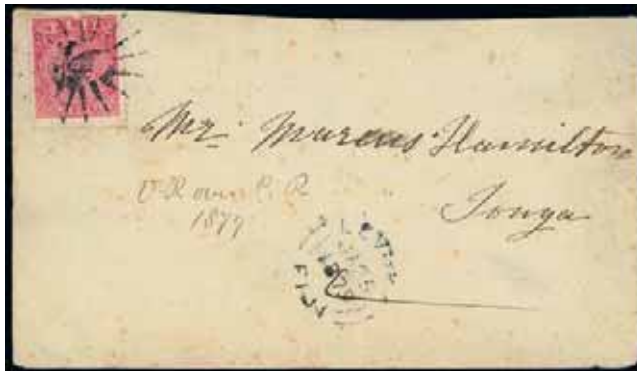 Mr. Marcus Hamilton
Tonga
V.R over C.R
1877
LEVUKA
FIJI